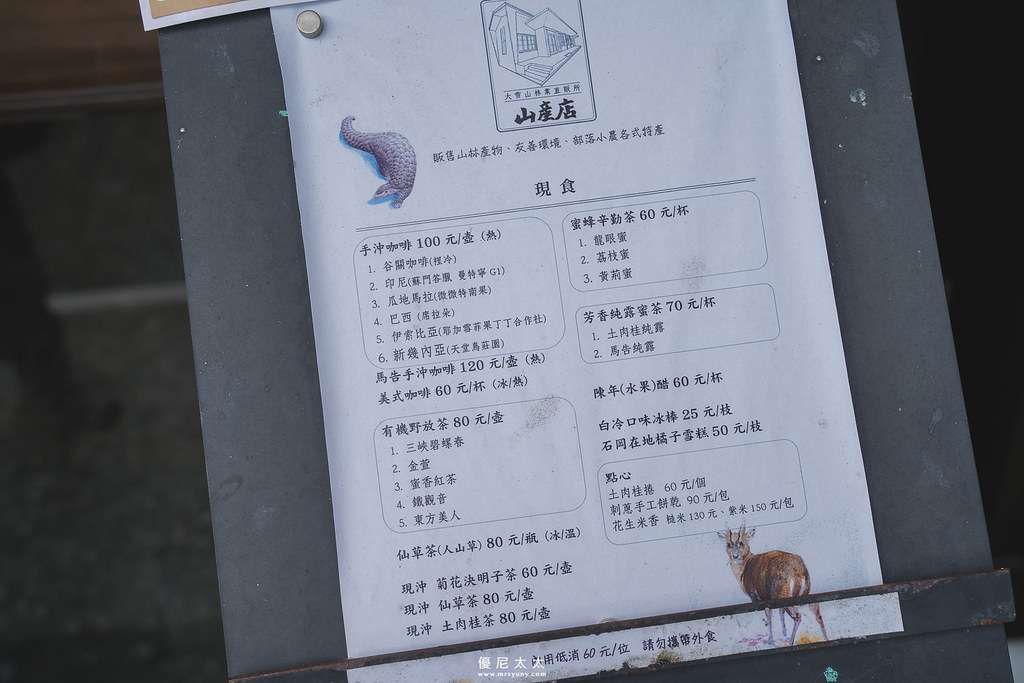 大雪山林業直販所
山產店
販售山林產物、友善環境、部落小農各式特產
現食
手沖咖啡 100 元/壺 (熱)
1. 谷關咖啡(裡冷)
2. 印尼(蘇門答臘 曼特寧 G1)
3. 瓜地馬拉(微微特南果)
4. 巴西 (席拉朵)
5. 伊索比亞(耶加雪菲果丁丁合作社)
6. 新幾內亞(天堂鳥莊園)
馬告手沖咖啡 120 元/壺 (熱)
美式咖啡 60 元/杯 (冰/熱)
有機野放茶 80 元/壺
1. 三峽碧螺春
2. 金萱
3. 蜜香紅茶
4. 鐵觀音
5. 東方美人
仙草茶(人山草) 80 元/瓶 (冰/溫)
現沖 菊花決明子茶 60 元/壺
現沖 仙草茶 80 元/壺
現沖 土肉桂茶 80 元/壺
蜜蜂辛勤茶 60 元/杯
1. 龍眼蜜
2. 荔枝蜜
3. 黃荊蜜
芳香純露蜜茶 70 元/杯
1. 土肉桂純露
2. 馬告純露
陳年(水果)醋 60 元/杯
白冷口味冰棒 25 元/枝
石岡在地橘子雪糕 50 元/枝
點心
土肉桂捲 60 元/個
刺蔥手工餅乾 90 元/包
花生米香 糙米 130 元、紫米 150 元/包
用低消 60 元/位 請勿攜帶外食
優尼太太
www.mrsyuny.com